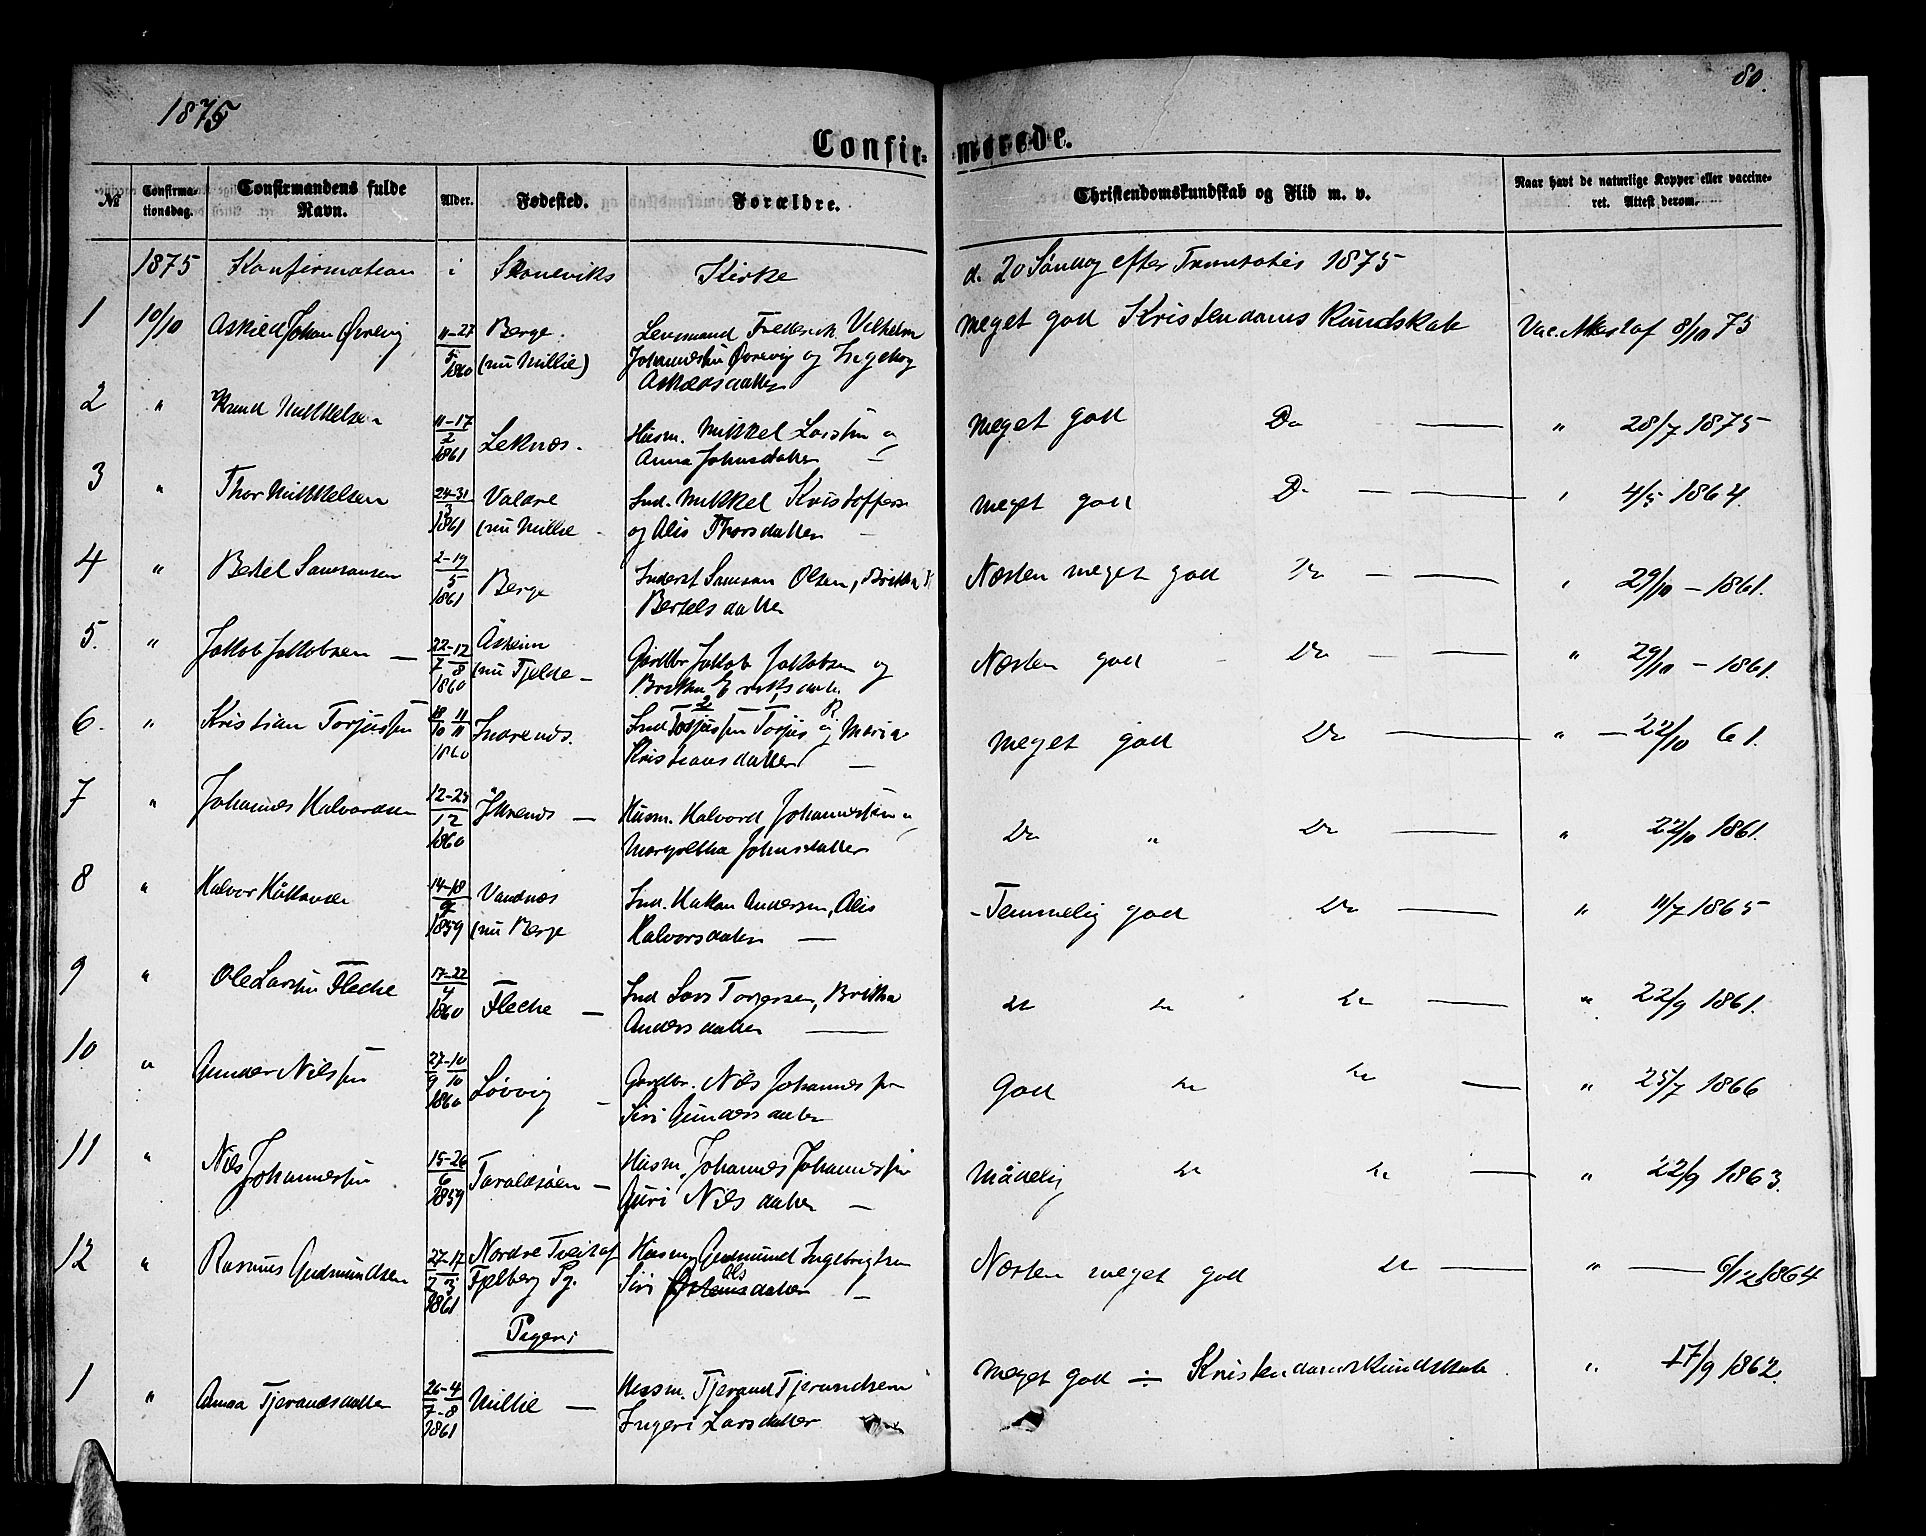 1875
80.
Confir-
merede.
№
Confirma-
tionsdag.
Confirmandens fulde
Navn.
Alder.
Fødested.
Forældre.
Christendomskundskab og Flid m. v.
Naar havt de naturlige Kopper eller vaccine-
ret. Attest derom.
1875 Konfirmation i Skoneviks Kirke d. 20 Søndag efter 1875
1 10/10 Johan 11-27/5 1860 Berge. (nu Millie)
Lensmand Frederik Vilhelm
Johannessen og Ingeborg
meget god Kristendoms Kundskab Vac. Attest af 8/10 75
2 " Knud Mikkelsen 11-17/2 1861 Leknæs.
Husm. Mikkel Larssen
Anna Johnsdatter
meget god Do " 28/7 1875
3 " Thor Mikkelsen 24-31/3 1861 Valdre (nu Millie
Ind. Mikkel Kristoffers
og Alis Thorsdatter
meget god Do 4/5 1864.
4 " Bertel Samsonsen 2-19/5 1861 Berge
Inderst Samson Olsen, Britha
Bertelsdatter
Næsten meget god Do " 29/10 – 1861.
5. " Jakob Jakobsen 22-12/7-8 1860 Askeim (nu Fjelde
Gårdbr Jakob Jakobsen og
Britha Eriksdatter
Næsten god Do " 29/10 – 1861.
6. " Kristian Torjussen 18/10 11/11 1860
Ind Torjussen Torjus og Maria
Kristiansdatter
meget god Do " 22/10 61.
7 " Johannes Halvordsen 12-25/12 1860
Husm. Halvord Johannessen
Margretha Johnsdatter
Do " Do " 22/10 1861.
8 " Halvor 14-18/9 1859 Vandnæs (nu Berge
Ind. Hakon Andersen, Alis
Halvorsdatter
Temmelig god Do " 11/7 1865
9 " Ole Larssen Fleche 17-22/4 1860 Fleche
Ind Lars Torgersen, Britha
Andersdatter
Do Do Do " 22/9 1861.
10. " Gunder Nilssen 27-10/9 10 1860 Løvvig
Gardbr. Nils Johannessen
Siri Gundersdatter
God Do Do " 25/7 1866
11 " Nils Johannessen 15-26/6 1859 Taraldsøen
Husm, Johannes Johannessen
Guri Nilsdatter
Mådelig Do Do " 22/9 1863.
12 " Rasmus Gudmundsen 27-17/2 3 1861 Nordre Tveit af Fjelberg Pg.
Husm, Gudmund Ingebrigtsen
Siri Olsdatter
Næsten meget god Do " 6/12 1864
Piger:
1 " Anna Tjerandsdatter 26-4/7-8 1861 Millie
Husm. Tjerand Tjerandsen
Ingeri Larsdatter
meget god ÷ Kristendomskundskab " 17/9 1862.